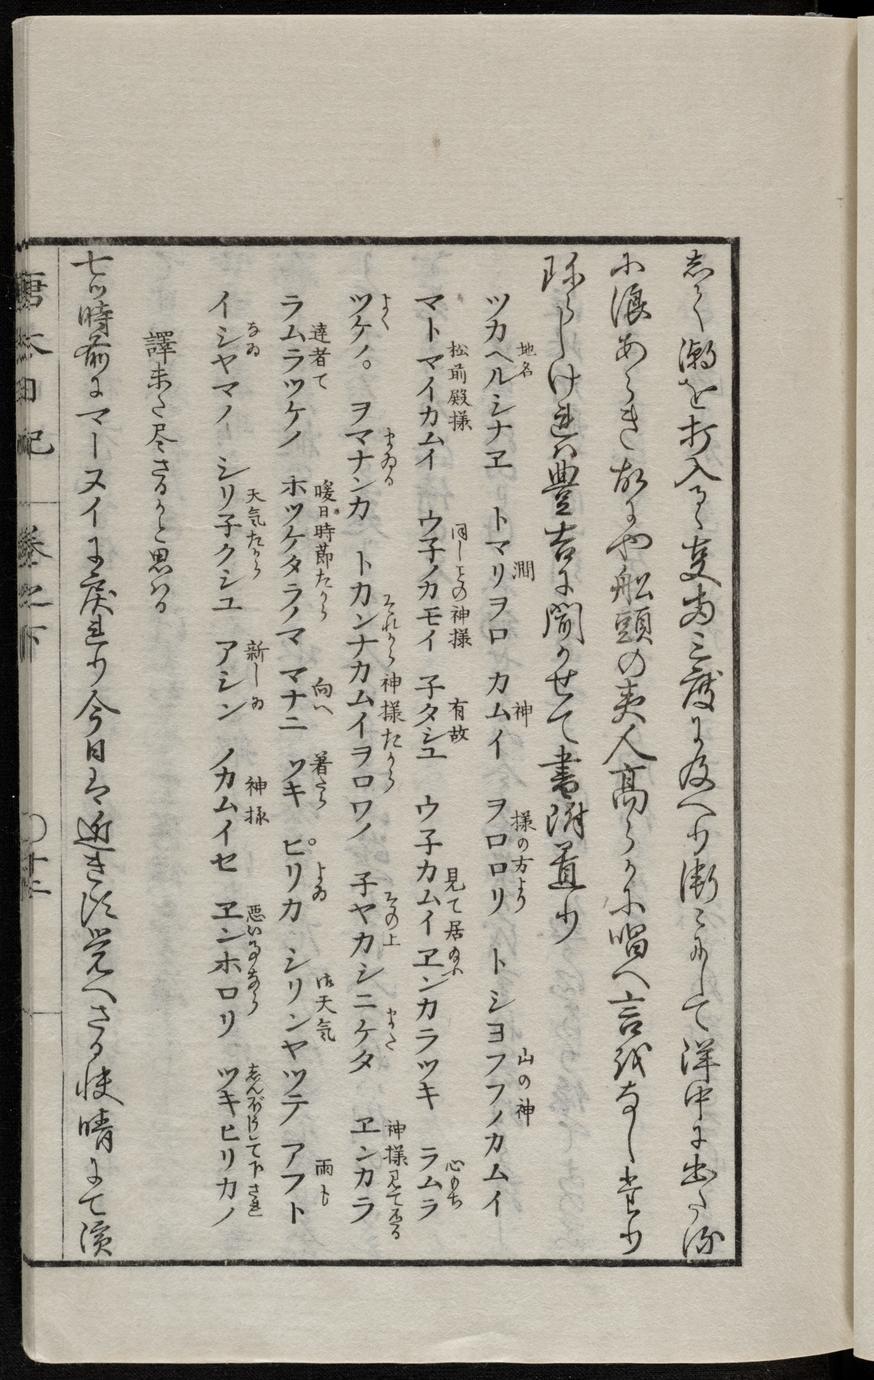 志く潮を打入るゝ夷両三度に及へり漸々にして洋中に出し
に浪あらき故にや船頭の夷人高らかに唱へ言越なし
珍らしけれは豊吉に聞かせて書附置り
地名 澗 神 様の方より 山の神
ツカヘルシナヱ トマリヲロ カムイ ヲロロリ トシヨフフノカムイ
松前殿様 同しとの神様 有故 見て居 心もち
マトマイカムイ ウ子ノカモイ 子タシユ ウ子カムイヱンカラツキ ラムラ
よく まゐる それから神様たから その上 また 神様見て居る
ツケノ。ヲマナンカ トカンナカムイヲロワノ 子ヤカシニケタ ヱンカラ
達者て 暖日時節たから 向へ 着たら よゐ 天気 雨も
ラムラツケノ ホツケタラノマ マナニ ツキ ピリカ シリンヤツテ アフト
なゐ 天気たから 新しゐ 神様 悪い 志んぼうして下され
イシヤマノ シリ子クシユ アシン ノカムイセ ヱンホロリ ツキヒリカノ
譯未た尽さるかと思はる
七ツ時前にマーヌイに戻れり今日は近き頃覚へさる快晴にて濱
唐太日記 巻之下 〇十二